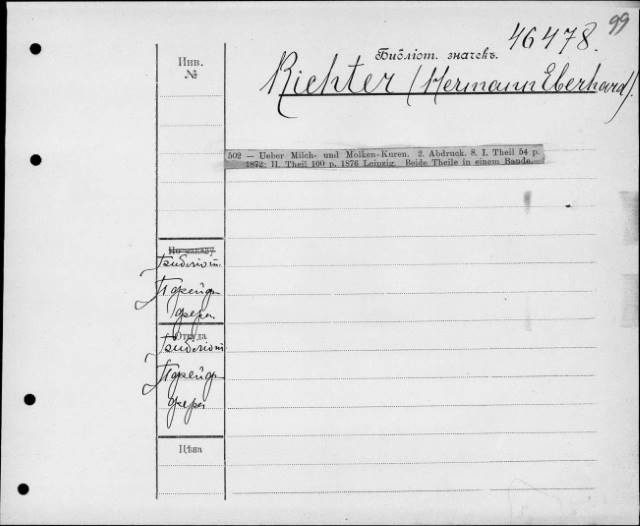 99
46478.
Инв.
№
Библіот. значекъ.
Richter (Hermann Eberhard).
502 — Ueber Milch- und Molken-Kuren. 2. Abdruck. 8. I. Theil 54 p.
1872; II. Theil 100 p. 1876 Leipzig. Beide Theile in einem Bande.
По заказу
Библіот.
Пфейф-
фера
Откуда
Библіот
Пфейф-
фера
Цѣна